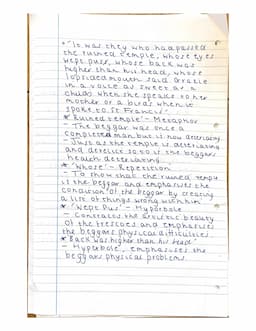 • "It was they who had passed
the ruined temple, whose eyes
wept pus, whose back was
higher than his head, whose
lopsided mouth said Grazie
in a voice as sweet as a
child's when she speaks to her
mother or a bird's when it
spoke to St Francis".
* 'Ruined temple' - Metaphor
- The beggar was once a
completed man but is now deteriorating
- Just as the temple is deteriorating
and derelict so to is the beggars
health deteriorating.
* 'Whose' - Repetition
- To show that the ruined temple
is the beggar and emphasises the
condition of the beggar by creating
a list of things wrong with him
* 'Wept Pus' - Hyperbole
- Contrasts the artistic beauty
of the frescoes and emphasises
the beggars physical difficulties.
* 'Back was higher than his head'
- Hyperbole, emphasises the
beggars physical problems.